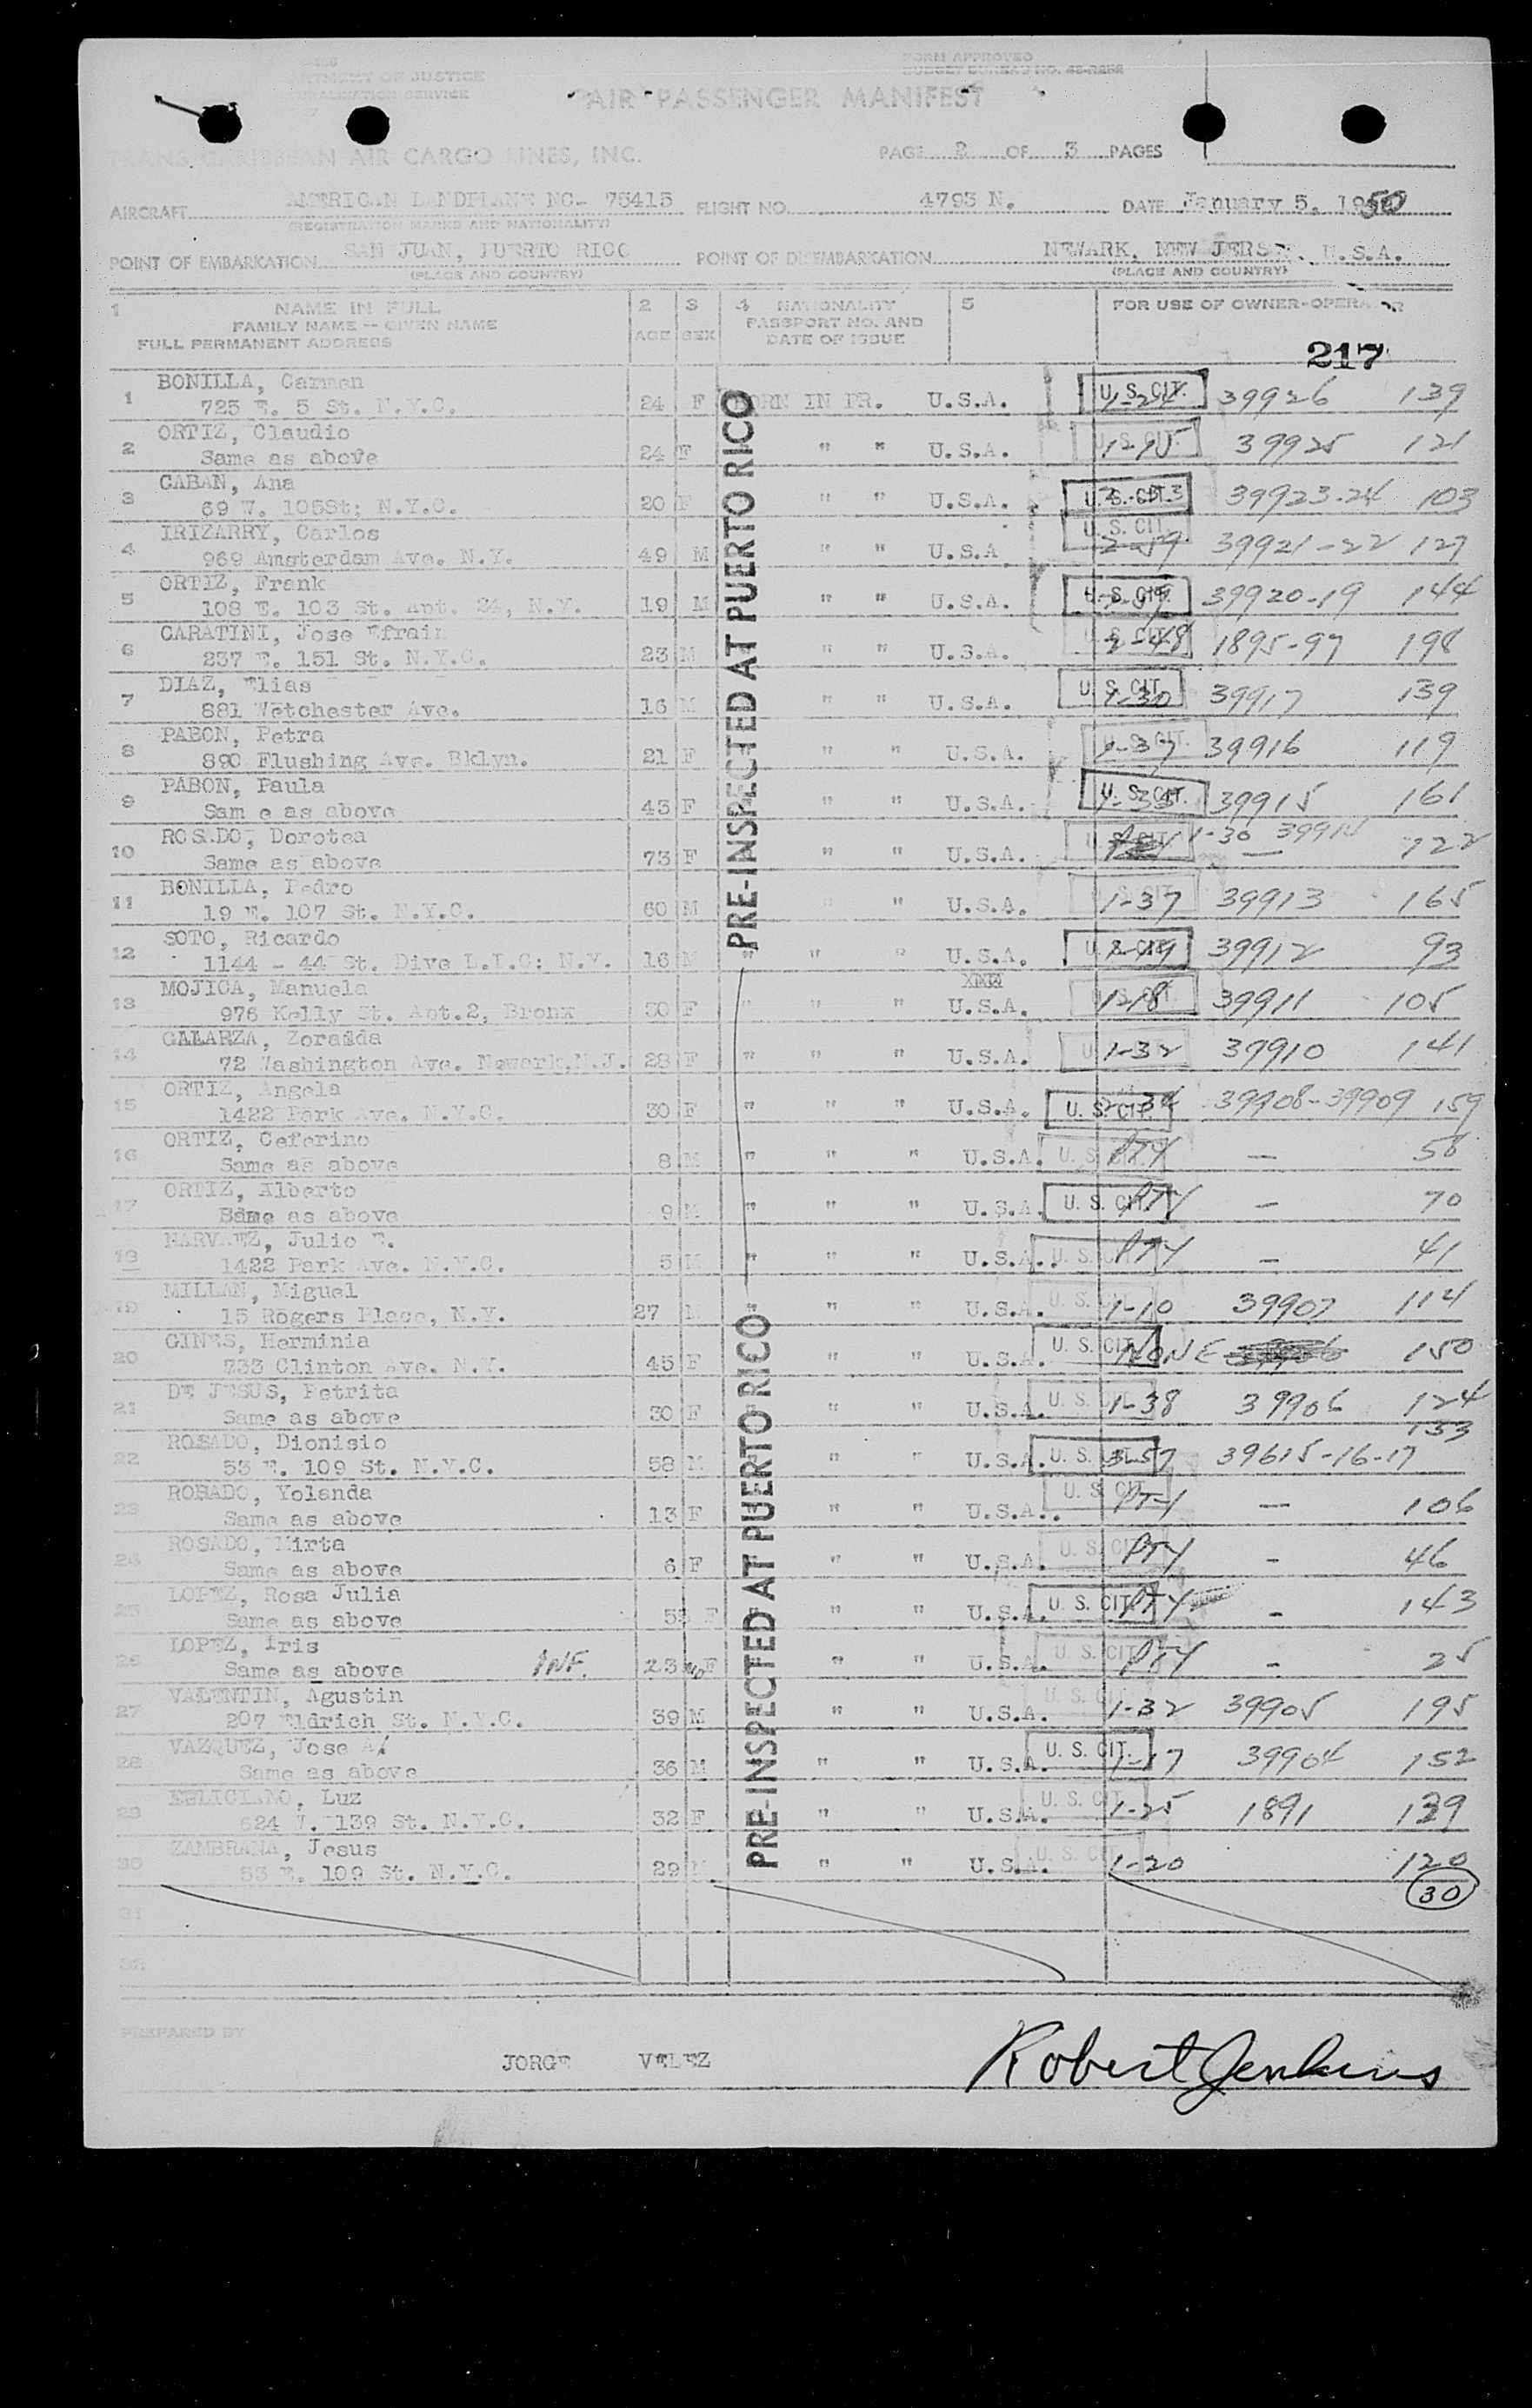 TMENT OF JUSTICE
FORM APPROVED
BUDGET BUREAU NO.
AIR PASSENGER MANIFEST
TRANS CARIBBEAN AIR CARGO LINES, INC.
PAGE 2 OF 3 PAGES
AIRCRAFT AMERICAN LANDPLANE NC- 75415 FLIGHT NO. 4793 N. DATE January 5, 1950
(REGISTRATION MARKS AND NATIONALITY)
POINT OF EMBARKATION SAN JUAN, PUERTO RICO POINT OF DISEMBARKATION NEWARK, NEW JERSEY, U.S.A.
(PLACE AND COUNTRY) (PLACE AND COUNTRY)
1 NAME IN FULL 2 3 4 NATIONALITY 5 FOR USE OF OWNER-OPERATOR
FAMILY NAME -- GIVEN NAME AGE SEX PASSPORT NO. AND
FULL PERMANENT ADDRESS DATE OF ISSUE
217
PRE-INSPECTED AT PUERTO RICO
1 BONILLA, Carmen
725 E. 5 St. N.Y.C. 24 F BORN IN PR. U.S.A. U. S. CIT. 39926 139
2 ORTIZ, Claudio
Same as above 24 F " " U.S.A. U. S. CIT. 1-15 39925 121
3 CABAN, Ana
69 W. 105St; N.Y.C. 20 F " " U.S.A. U. S. CIT. 39923-24 103
4 IRIZARRY, Carlos
969 Amsterdam Ave. N.Y. 49 M " " U.S.A U. S. CIT. 2-59 39921-22 127
5 ORTIZ, Frank
108 E. 103 St. Apt. 24, N.Y. 19 M " " U.S.A. U. S. CIT. 39920-19 144
6 CARATINI, Jose Efrain
237 E. 151 St. N.Y.C. 23 M " " U.S.A. 2-48 1895-97 198
7 DIAZ, Elias
881 Wetchester Ave. 16 M " " U.S.A. U. S. CIT. 1-30 39917 139
8 PABON, Petra
890 Flushing Ave. Bklyn. 21 F " " U.S.A. U. S. CIT. 1-37 39916 119
9 PABON, Paula
Sam e as above 45 F " " U.S.A. U. S. CIT. 39915 161
10 ROSADO, Dorotea
Same as above 73 F " " U.S.A. 1-30 39914 — 122
11 BONILLA, Pedro
19 E. 107 St. N.Y.C. 60 M " " U.S.A. 1-37 39913 165
12 SOTO, Ricardo
1144 - 44 St. Dive L.I.C: N.Y. 16 M " " " U.S.A. U. S. CIT. 39912 93
13 MOJICA, Manuela
976 Kelly St. Apt.2, Bronx 50 F " " " U.S.A. 1-18 39911 105
14 GALARZA, Zoraida
72 Washington Ave. Newark,N.J. 28 F " " " U.S.A. 1-32 39910 141
15 ORTIZ, Angela
1422 Park Ave. N.Y.C. 30 F " " " U.S.A. U. S. CIT. 39908-39909 159
16 ORTIZ, Ceferino
Same as above 8 M " " " U.S.A. U. S. CIT. PTY — 58
17 ORTIZ, Alberto
Same as above 9 M " " " U.S.A. U. S. CIT. PTY — 70
18 NARVAEZ, Julio E.
1422 Park Ave. N.Y.C. 5 M " " " U.S.A. U. S. CIT. PTY — 41
19 MILLAN, Miguel
15 Rogers Place, N.Y. 27 M " " " U.S.A. U. S. CIT. 1-10 39907 114
PRE-INSPECTED AT PUERTO RICO
20 GINES, Herminia
733 Clinton Ave. N.Y. 45 F " " U.S.A. U. S. CIT. NONE 150
21 DE JESUS, Petrita
Same as above 30 F " " U.S.A. U. S. CIT. 1-38 39906 124
22 ROSADO, Dionisio
53 E. 109 St. N.Y.C. 58 M " " U.S.A. U. S. CIT. 3-57 39615-16-17 153
23 ROSADO, Yolanda
Same as above 13 F " " U.S.A. U. S. CIT. PTY — 106
24 ROSADO, Mirta
Same as above 6 F " " U.S.A. U. S. CIT. PTY - 46
25 LOPEZ, Rosa Julia
Same as above F " " U.S.A. U. S. CIT. PTY - 143
26 LOPEZ, Iris
Same as above INF. 23 MO F " " U.S.A. U. S. CIT. PTY - 25
27 VALENTIN, Agustin
207 Eldrich St. N.Y.C. 39 M " " U.S.A. U. S. CIT. 1-32 39905 195
28 VAZQUEZ, Jose A.
Same as above 36 M " " U.S.A. U. S. CIT. 1-17 39904 152
29 FELICIANO, Luz
624 W. 139 St. N.Y.C. 32 F " " U.S.A. U. S. CIT. 1-25 1891 139
30 ZAMBRANA, Jesus
53 E. 109 St. N.Y.C. 29 M " " U.S.A. U. S. CIT. 1-20 120
30
31
32
PREPARED BY
JORGE VELEZ
Robert Jenkins